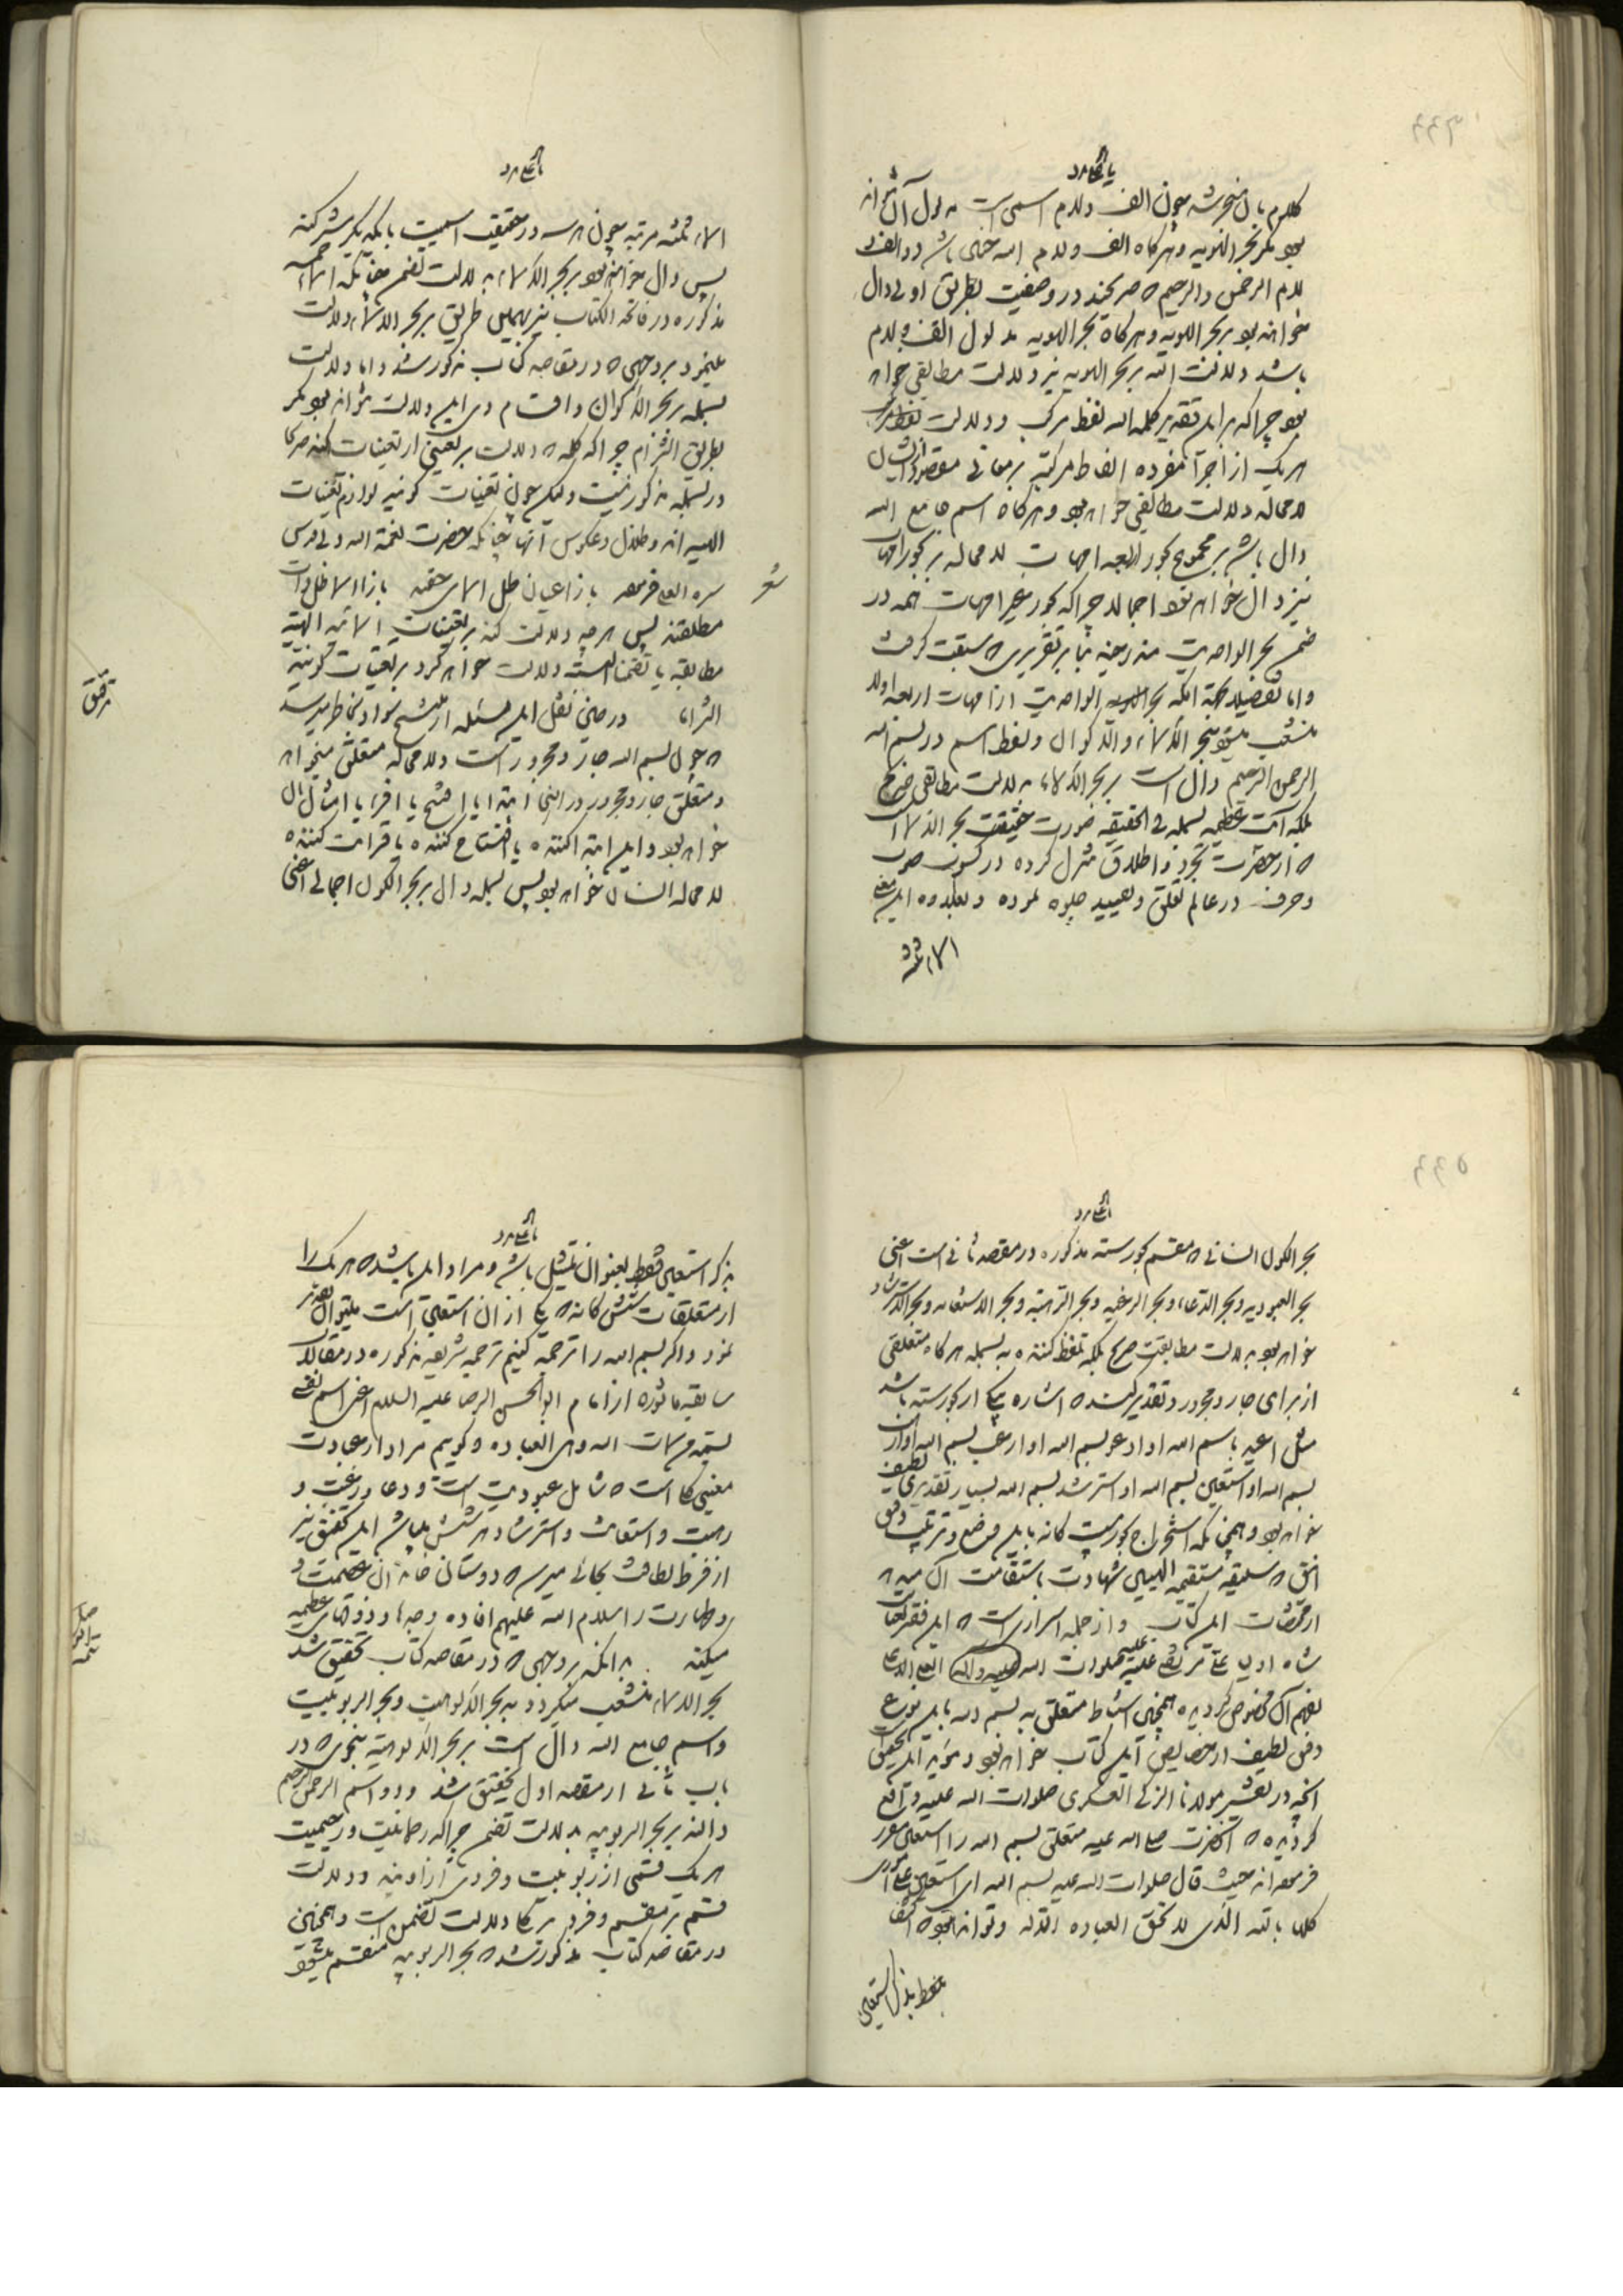 یا علی مدد
کلام بال منحوشه چون الف و لام اسمی است مدلول آن تواند
بود مگر بحر الهویه و هرگاه الف و لام الله چنین باشد دو الف و
لام الرحمن والرحیم که صریحند در وصفیت بطریق اولی دال
خواهند بود بر بحر الهویه و هرگاه بحر الهویه مدلول الف و لام
باشد دلالت الله بر بحر الهویه نیز دلالت مطابقی خواهد
بود چرا که بر این تقدیر کلمه الله لفظ مرکب و دلالت
هر یک از اجزاء مفرده الفاظ مرکبه بر معانی مقصوده
لامحاله دلالت مطابقی خواهد بود و هرگاه اسم جامع الله
دال باشد بر مجموع بحور اربعه امهات لامحاله بر بحور امهات
نیز دال خواهد بود اجمالا چرا که بحور غیر امهات همه در
ضمن بحر الواحدیت مندرجند بنا بر تقریری که سبقت گرفت
و اما تفصیلا بجهة آنکه بحر الواحدیت از امهات اربعه اولا
منشعب میشود ببحر الاسماء والاکوان و لفظ اسم در بسم الله
الرحمن الرحیم دال است بر بحر الاسماء بدلالت مطابقی صریح
بلکه آیت عظیمه بسمله فی الحقیقه صورت حقیقت بحر الاسماء است
که از حضرت تجرد و اطلاق تنزل کرده در کسوت صوت
و حرف در عالم تعلق و تقیید جلوه نموده و بعلاوه این معنی
الاسماء ثلثه
یا علی مدد
الاسماء ثلثه مرتبه چون هر سه در حقیقت اسمیت با یکدیگر شرکند
پس دال خواهند بود بر بحر الاسماء بدلالت تضمن چنانکه اسماء خمسه
مذکوره در فاتحة الکتاب نیز بهمین طریق بر بحر الاسماء دلالت
مینمود بر وجهی که در مقاصد کتاب مذکور شد و اما دلالت
بسمله بر بحر الاکوان و اقسام وی این دلالت نتواند بود مگر
بطریق التزام چرا که کلمه که دلالت بر تعینی از تعینات کند صریحا
در بسمله مذکور نیست ولیکن چون تعینات کونیه لوازم تعینات
الهیه اند و ظلال و عکوس آنها چنانکه حضرت نعمة الله ولی قدس
سره العلی فرموده شعر بازا اعیان ظل اسمای حقند بازا اسما ظل ذات
مطلقند پس هر چه دلالت کند بر تعینات اسمائیه الهیه
مطابقه یا تضمنا البته دلالت خواهد کرد بر تعینات کونیه
التزاما در حین نقل این مسئله از منتسخ سواد بخاطر میرسد
که چون بسم الله جار و مجرور است و لامحاله متعلق میخواهد
و متعلق جار و مجرور در اینجا ابتدا یا افتتح یا اقراء یا امثال آن
خواهد بود و این ابتدا کننده یا افتتاح کننده یا قرائت کننده
لامحاله انسان خواهد بود پس بسمله دال بر بحر الکون اجمالی اعنی
تحقیق
یا علی مدد
بحر الکون انسانی که مقسم بحور سته مذکوره در مقصد ثانی است اعنی
بحر العبودیه و بحر الدعاء و بحر الرغبه و بحر الرهبة و بحر الاستعانه و بحر الاسترشاد
خواهد بود بدلالت مطابقت صریح بلکه تلفظ کننده به بسمله هرگاه متعلقی
از برای جار و مجرور تقدیر کند که اشاره بیکی از بحور سته باشد
مثل اعبد باسم الله او ادعو بسم الله او ارغب بسم الله او ارهب
بسم الله او استعین بسم الله او استرشد بسم الله بسیار تقدیری لطیف
خواهد بود و همچنانکه استخراج بحور بیست کانه باین وضع و ترتیب دقیق
انیق که سلیقه مستقیمه الهیین شهادت باستقامت آن میدهد
از مختصات این کتاب و از جمله اسراریست که این فقیر
شاه اولیا علی مرتضی علیه صلوات الله العلی الاعلی
بفهم آن مخصوص گردیده همچنین استنباط متعلق به بسم الله باین نوع
دقیق لطیف از خصایص این کتاب خواهد بود و مؤید این تحقیق
آنچه در تفسیر مولانا الزکی العسکری صلوات الله علیه واقع
گردیده که آنحضرت صلی الله علیه متعلق بسم الله را استعین مقرر
فرموده اند حیث قال صلوات الله علیه بسم الله ای استعین علی اموری
کلها بالله الذی لا تحق العباده الا له و تواند بود که اکتفا
فقط بذکر استعین
یا علی مدد
بذکر استعین فقط بعنوان تمثیل باشد و مراد این باشد که هر یک را
از متعلقات شش کانه که یکی از آن استعین است میتوان تقدیر
نمود و اگر بسم الله را ترجمه کنیم ترجمه شریفه مذکوره در مقالات
سابقه ماثوره از امام ابوالحسن الرضا علیه السلام اعنی اسم نفسی
بسمة من سمات الله وهی العباده و گوییم مراد از عبادت
معنی است که شامل عبودیت است و دعا و رغبت و
رهبت و استعانت و استرشاد هر شش باشد این تحقیق نیز
از فرط لطافت بجائی میرسد که دوستان خاندان عصمت
و طهارت را سلام الله علیهم افاده وجدها و ذوقهای عظیمه
میکند و آنکه بر وجهی که در مقاصد کتاب تحقیق شد
بحر الاسماء منشعب میگردد به بحر الالوهیت و بحر الربوبیت
و اسم جامع الله دال است بر بحر الالوهیة بنحوی که در
باب ثانی از مقصد اول تحقیق شد و دو اسم الرحمن الرحیم
دالند بر بحر الربوبیه بدلالت تضمن چرا که رحمانیت و رحیمیت
هر یک قسمی از ربوبیت و فردی از اویند و دلالت
قسم بر مقسم و فرد بر کلی دلالت تضمن است و همچنین
در مقاصد کتاب مذکور شد که بحر الربوبیه منقسم میشود